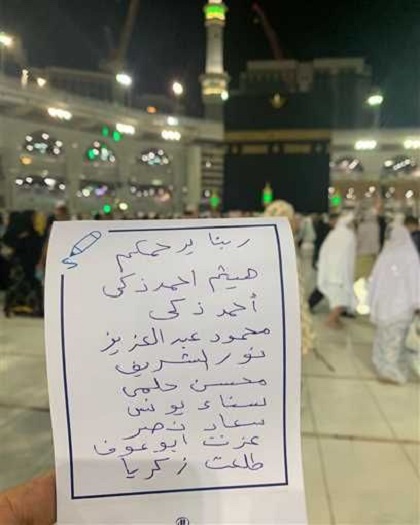 ربنا يرحمكم
هيثم احمد زكى
أحمد زكى
محمود عبد العزيز
نور الشريف
محسن حلمى
سناء يونس
سعاد نصر
عزت ابو عوف
طلعت زكريا